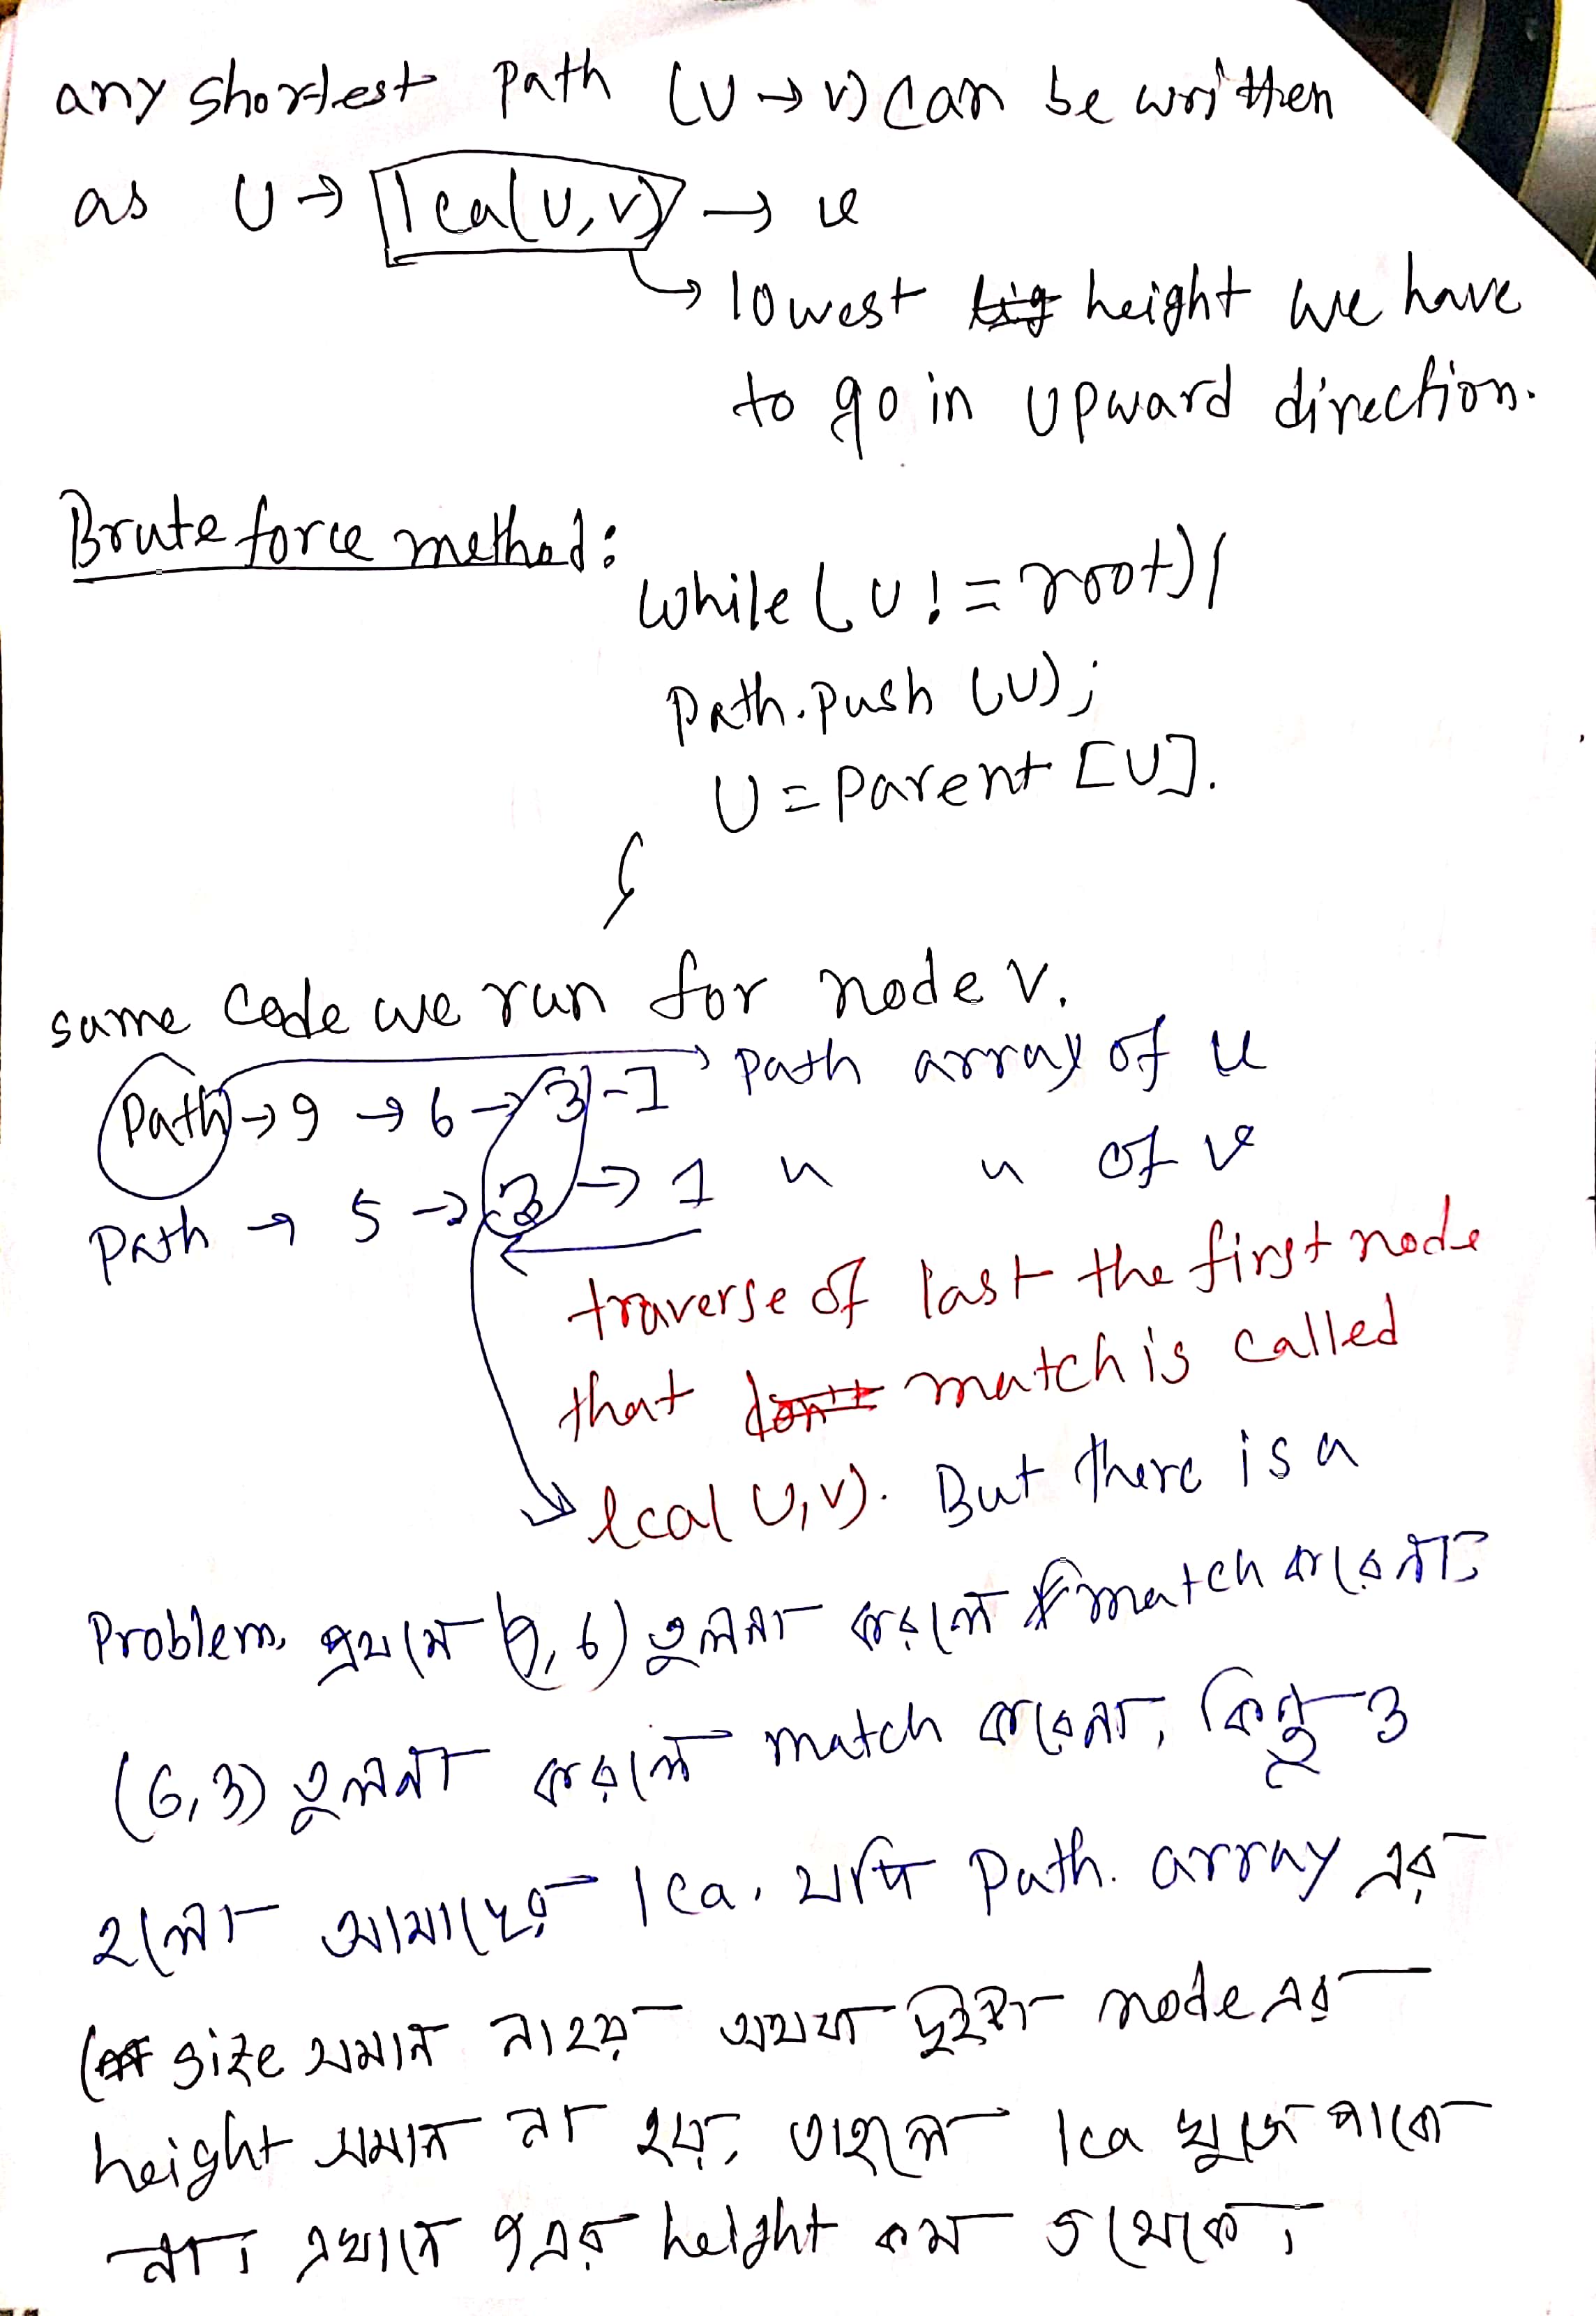 any shortest path (U → v) can be written
as U → lca(U,v) → v
↳ lowest height we have
to go in upward direction.
Brute force method:
while (U != root) {
path.push (U);
U = parent [U].
}
same code we run for node v.
Path → 9 → 6 → 3 - 1 path array of u
Path → 5 → 3 → 1 " " of v
traverse of last the first node
that match is called
lca(U,v). But there is a
Problem, প্রথমে 6) তুলনা করলে match করেনা;
(6,3) তুলনা করলে match করেনা, কিন্তু 3
হলো আমাদের lca. যদি path. array এর
size সমান না হয় অথবা দুইটা node এর
height সমান না হয়, তাহলে lca খুজে পাবো
না। এখানে 9 এর height কম 5 থেকে।